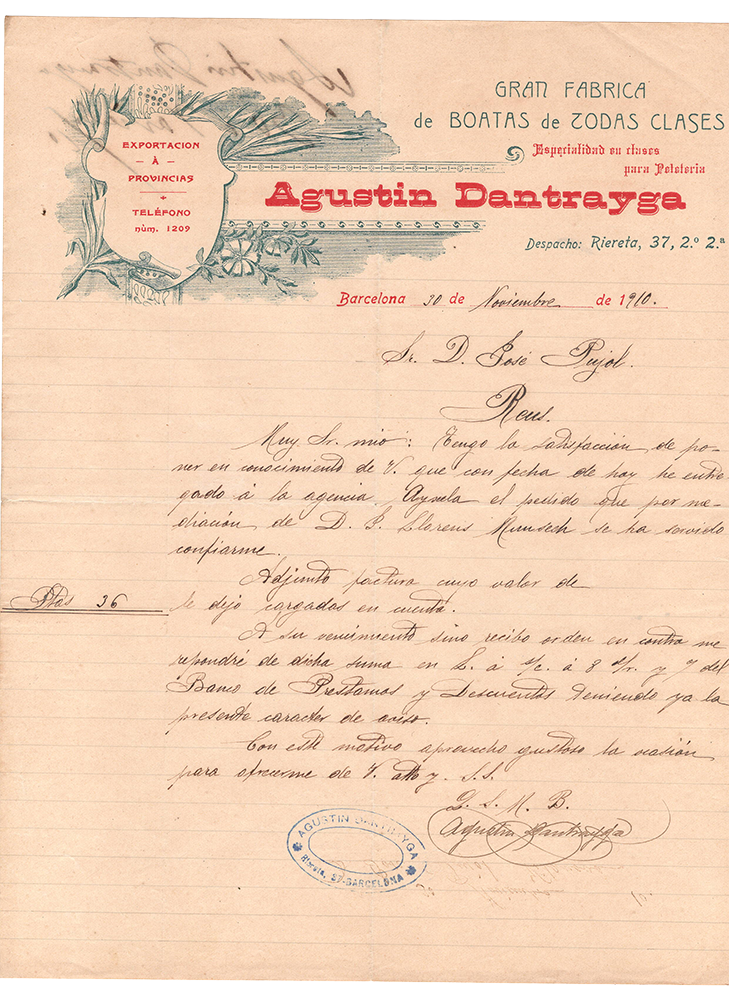 GRAN FABRICA
de BOATAS de TODAS CLASES
Especialidad en clases
para Peleteria
Agustin Dantrayga
Despacho: Riereta, 37, 2.º 2.ª
EXPORTACION
Á
PROVINCIAS
TELÉFONO
núm. 1209
Barcelona 30 de Noviembre de 1910.
Sr. D. José Pujol.
Reus.
Muy Sr. mio: Tengo la satisfacción de po-
ner en conocimiento de V. que con fecha de hoy he entre
gado á la agencia el pedido que por me-
diación de D. J. Llorens se ha servido
confiarme.
Adjunto factura cuyo valor de
Ptas 36 le dejo cargadas en cuenta.
A su vencimiento sino recibo orden en contra me
repondré de dicha suma en L. á m/c. á 8 d/v. y 7 del
Banco de Prestamos y Descuentos teniendo ya la
presente caracter de aviso.
Con este motivo aprovecho gustoso la ocasión
para ofrecerme de V. atto y. S.S.
Q. S. M. B.
Agustin Dantrayga
AGUSTIN DANTRAYGA
Riereta, 37-BARCELONA